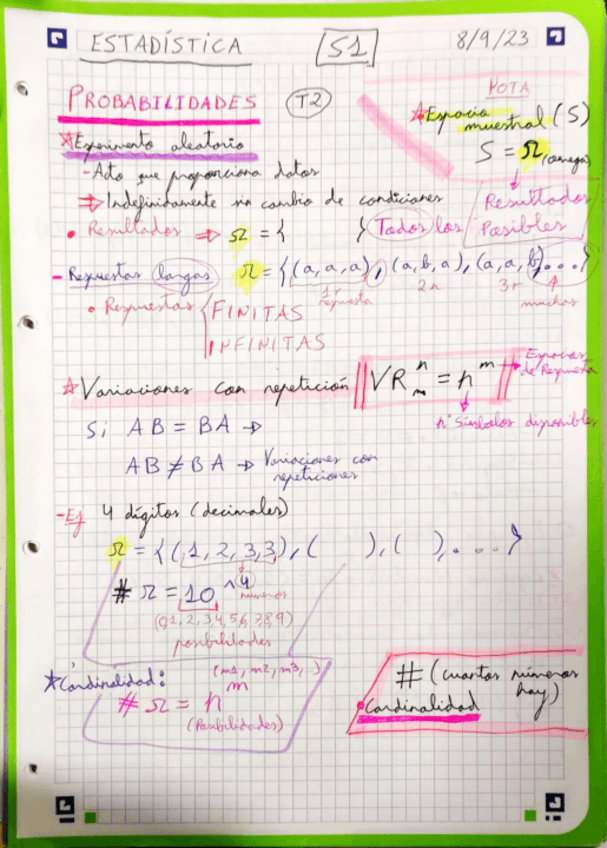 ESTADÍSTICA S1 8/9/23
PROBABILIDADES T2
NOTA
*Espacio
muestral (S)
S = Ω (omega)
Resultados
Posibles
*Experimento aleatorio
- Acto que proporciona datos
⇒ Indefinidamente sin cambio de condiciones
• Resultados ⇒ Ω = { } Todos los
- Respuestas largas Ω = {(a, a, a), (a, b, a), (a, a, b)...}
1r respuesta 2r 3r muchas
• Respuestas { FINITAS
INFINITAS
*Variaciones con repetición VR_m^n = n^m
Espacios
de Respuesta
nº símbolos disponibles
Si AB = BA →
AB ≠ BA → Variaciones con
repeticiones
- Ej 4 dígitos (decimales)
Ω = {(1, 2, 3, 3), ( ), ( ), ....}
# Ω = 10 ^4
números
(0,1,2,3,4,5,6,7,8,9)
posibilidades
*Cardinalidad: (m1, m2, m3, .)
# Ω = n^m
(Posibilidades)
# (cuantos números
hay)
• Cardinalidad